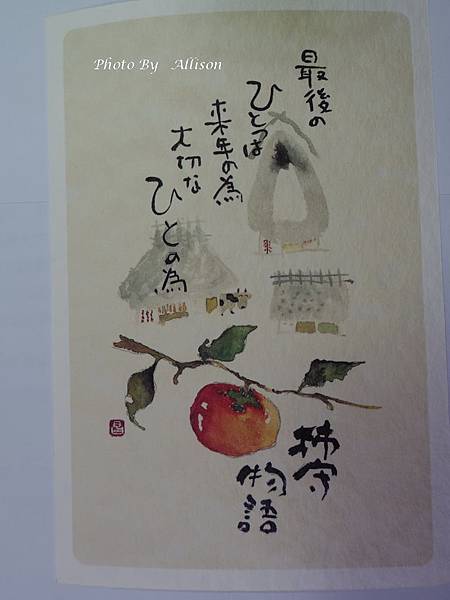 Photo By Allison
最後の
ひとつは
来年の為
大切な
ひとの為
柿守
物語
昌